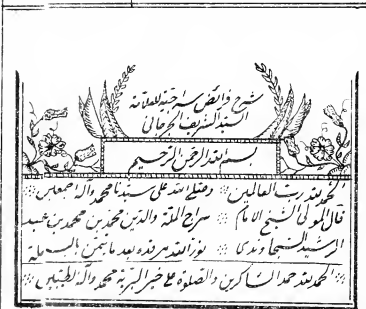 شرح فرائض سراجية للعلامة
السيد الشريف الجرجاني
بسم الله الرحمن الرحيم
الحمد لله رب العالمين وصلى الله على سيدنا محمد وآله اجمعين
قال المولى الشيخ الامام سراج الملة والدين محمد بن محمد بن عبد
الرشيد السجاوندي نور الله مرقده بعد ما تيمن بالبسملة
الحمد لله حمد الشاكرين والصلوة على خير البرية محمد وآله الطيبين